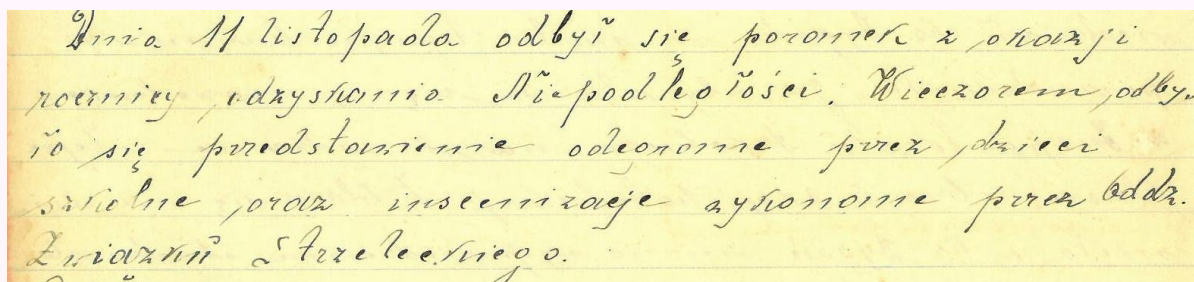 Dnia 11 listopada odbył się poranek z okazji
rocznicy odzyskania Niepodległości. Wieczorem odby-
ło się przedstawienie odegrane przez dzieci
szkolne oraz inscenizacje wykonane przez Oddz.
Związku Strzeleckiego.